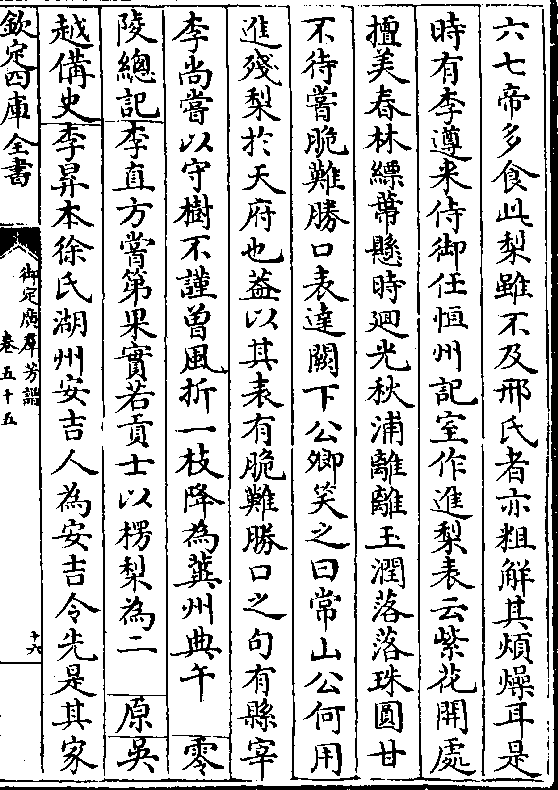 六七帝多食此梨雖不及邢氏者亦粗解其煩燥耳是
時有李遵来侍御任恒州記室作進梨表云紫花開處
擅美春林縹蔕懸時迴光秋浦離離玉潤落落珠圓甘
不待嘗脆難勝口表達闕下公卿笑之曰常山公何用
進殘梨於天府也葢以其表有脆難勝口之句有縣宰
李尚嘗以守樹不謹曽風折一枝降為冀州典午 零
陵總記李直方嘗第果實若貢士以楞梨為二 原 吳
越備史李昇本徐氏湖州安吉人為安吉令先是其家
欽定四庫全書
御定廣羣芳譜
卷五十五
十六